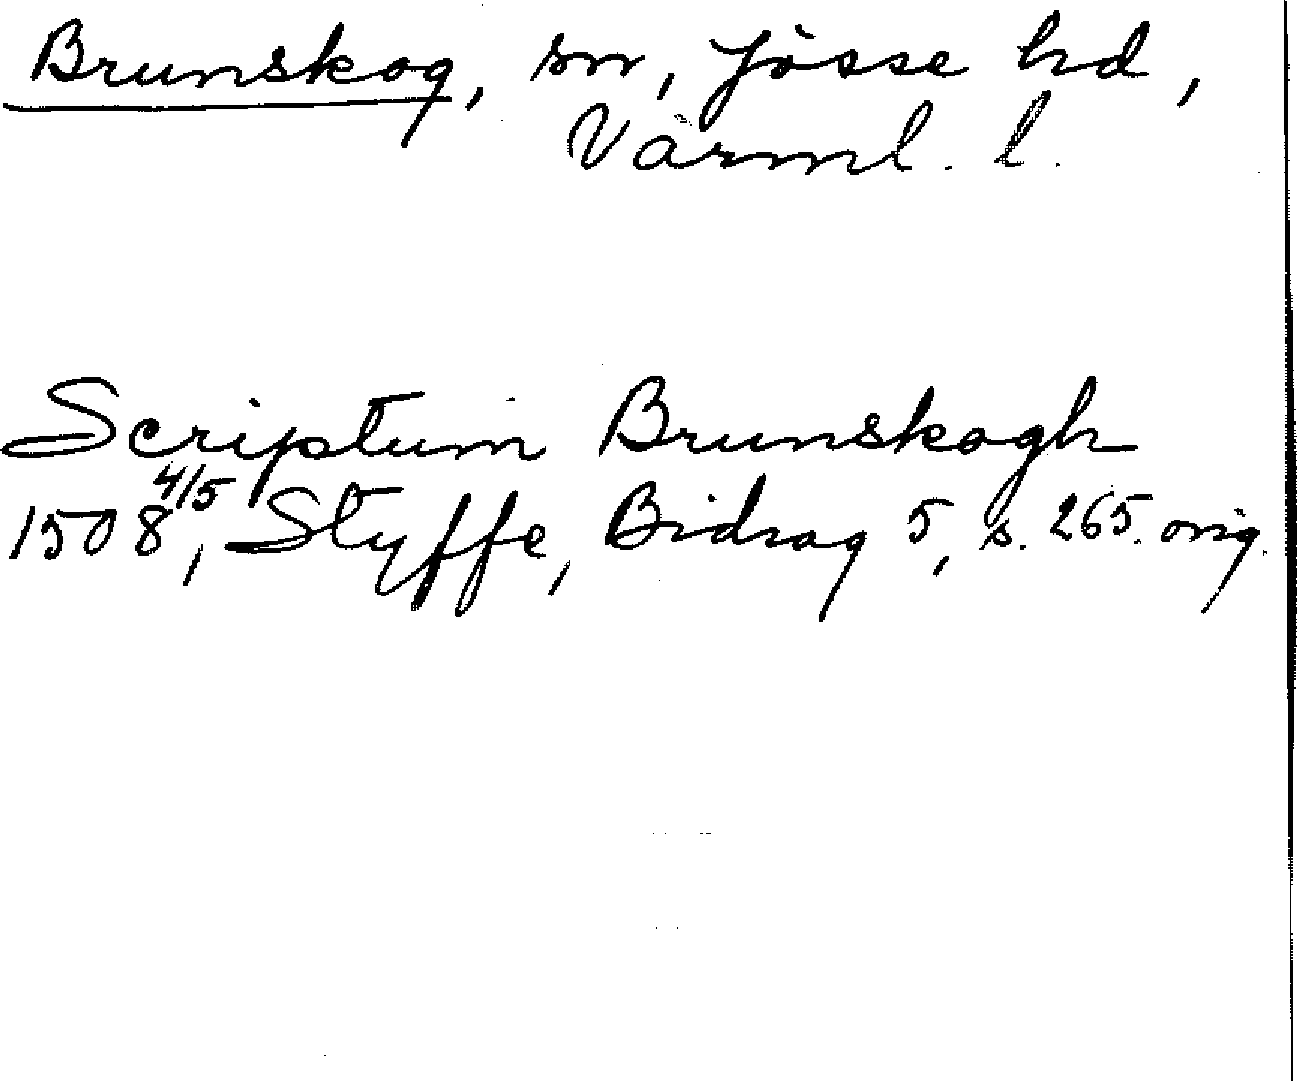 Brunskog, sn, Jösse hd,
Värml. l.
Scriptum Brunskogh
1508 4/5, Styffe, Bidrag 5, s. 265. orig.